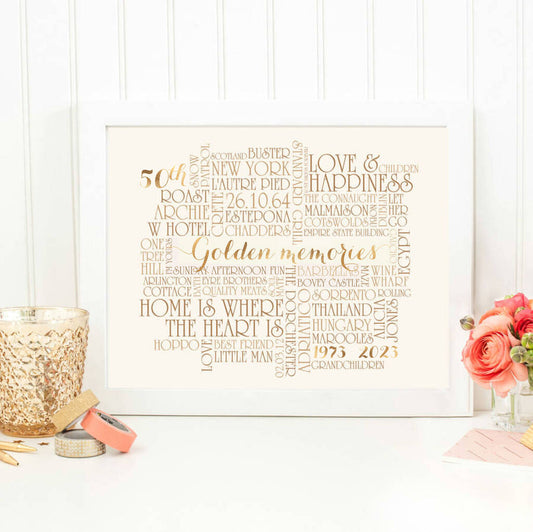 50th
SNOW
PATROL
SCOTLAND BUSTER
NEW YORK
L'AUTRE PIED
STANDARD GRILL
LOVE &
CHILDREN
HAPPINESS
ROAST
ARCHIE
CRETE
26.10.64
ESTEPONA
THE CONNAUGHT
MALMAISON
COTSWOLDS
LET
HER
GO
W HOTEL
CHADDERS
EMPIRE STATE BUILDING
ONE
TREE
HILL
YOURS
Golden memories
EGYPT
SUNDAY AFTERNOON FUN
BARBELLS
WINE
WHARF
ARLINGTON
COTTAGE
EYRE BROTHERS
QUALITY MEATS
THE DORCHESTER
BOVEY CASTLE
MAX
ROLLING
HOME IS WHERE
THE HEART IS
ADRIATICO
SORRENTO
THAILAND
HUNGARY
MAROOLES
ALICIA
JONES
HOPPO
LOVE
BEST FRIEND
LITTLE MAN
02.03.12
1973 - 2023
GRANDCHILDREN